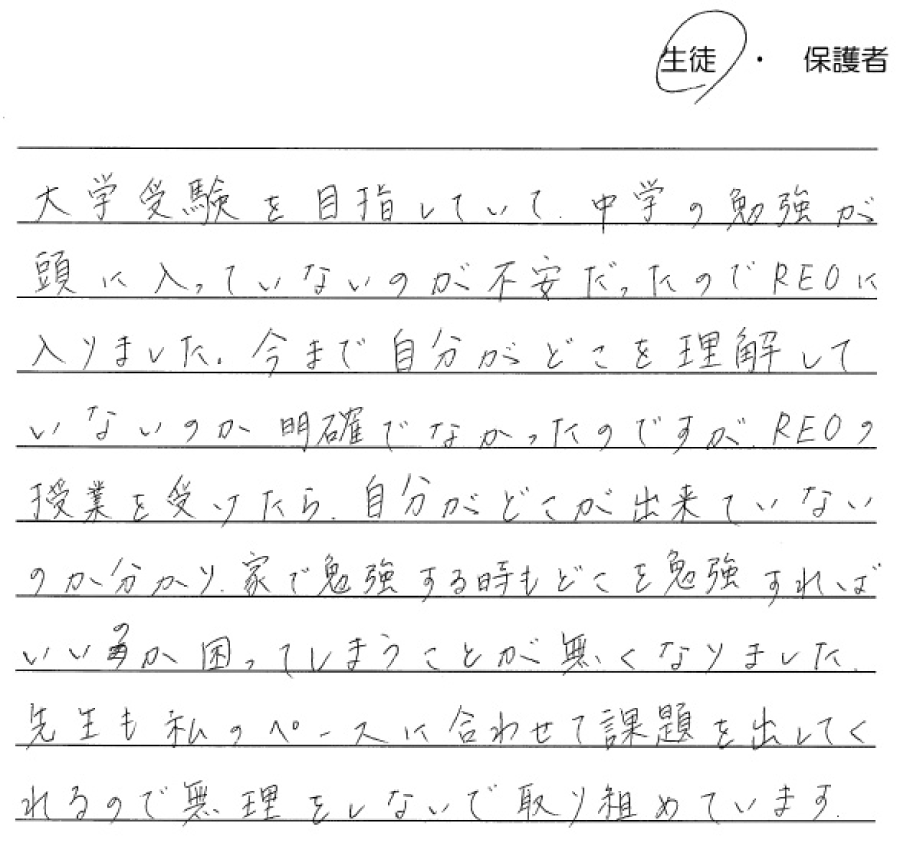 生徒 ・ 保護者
大学受験を目指していて、中学の勉強が
頭に入っていないのが不安だったのでREOに
入りました。今まで自分がどこを理解して
いないのか明確でなかったのですが、REOの
授業を受けたら、自分がどこが出来ていない
のか分かり、家で勉強する時もどこを勉強すれば
いいのか困ってしまうことが無くなりました。
先生も私のペースに合わせて課題を出してく
れるので無理をしないで取り組めています。